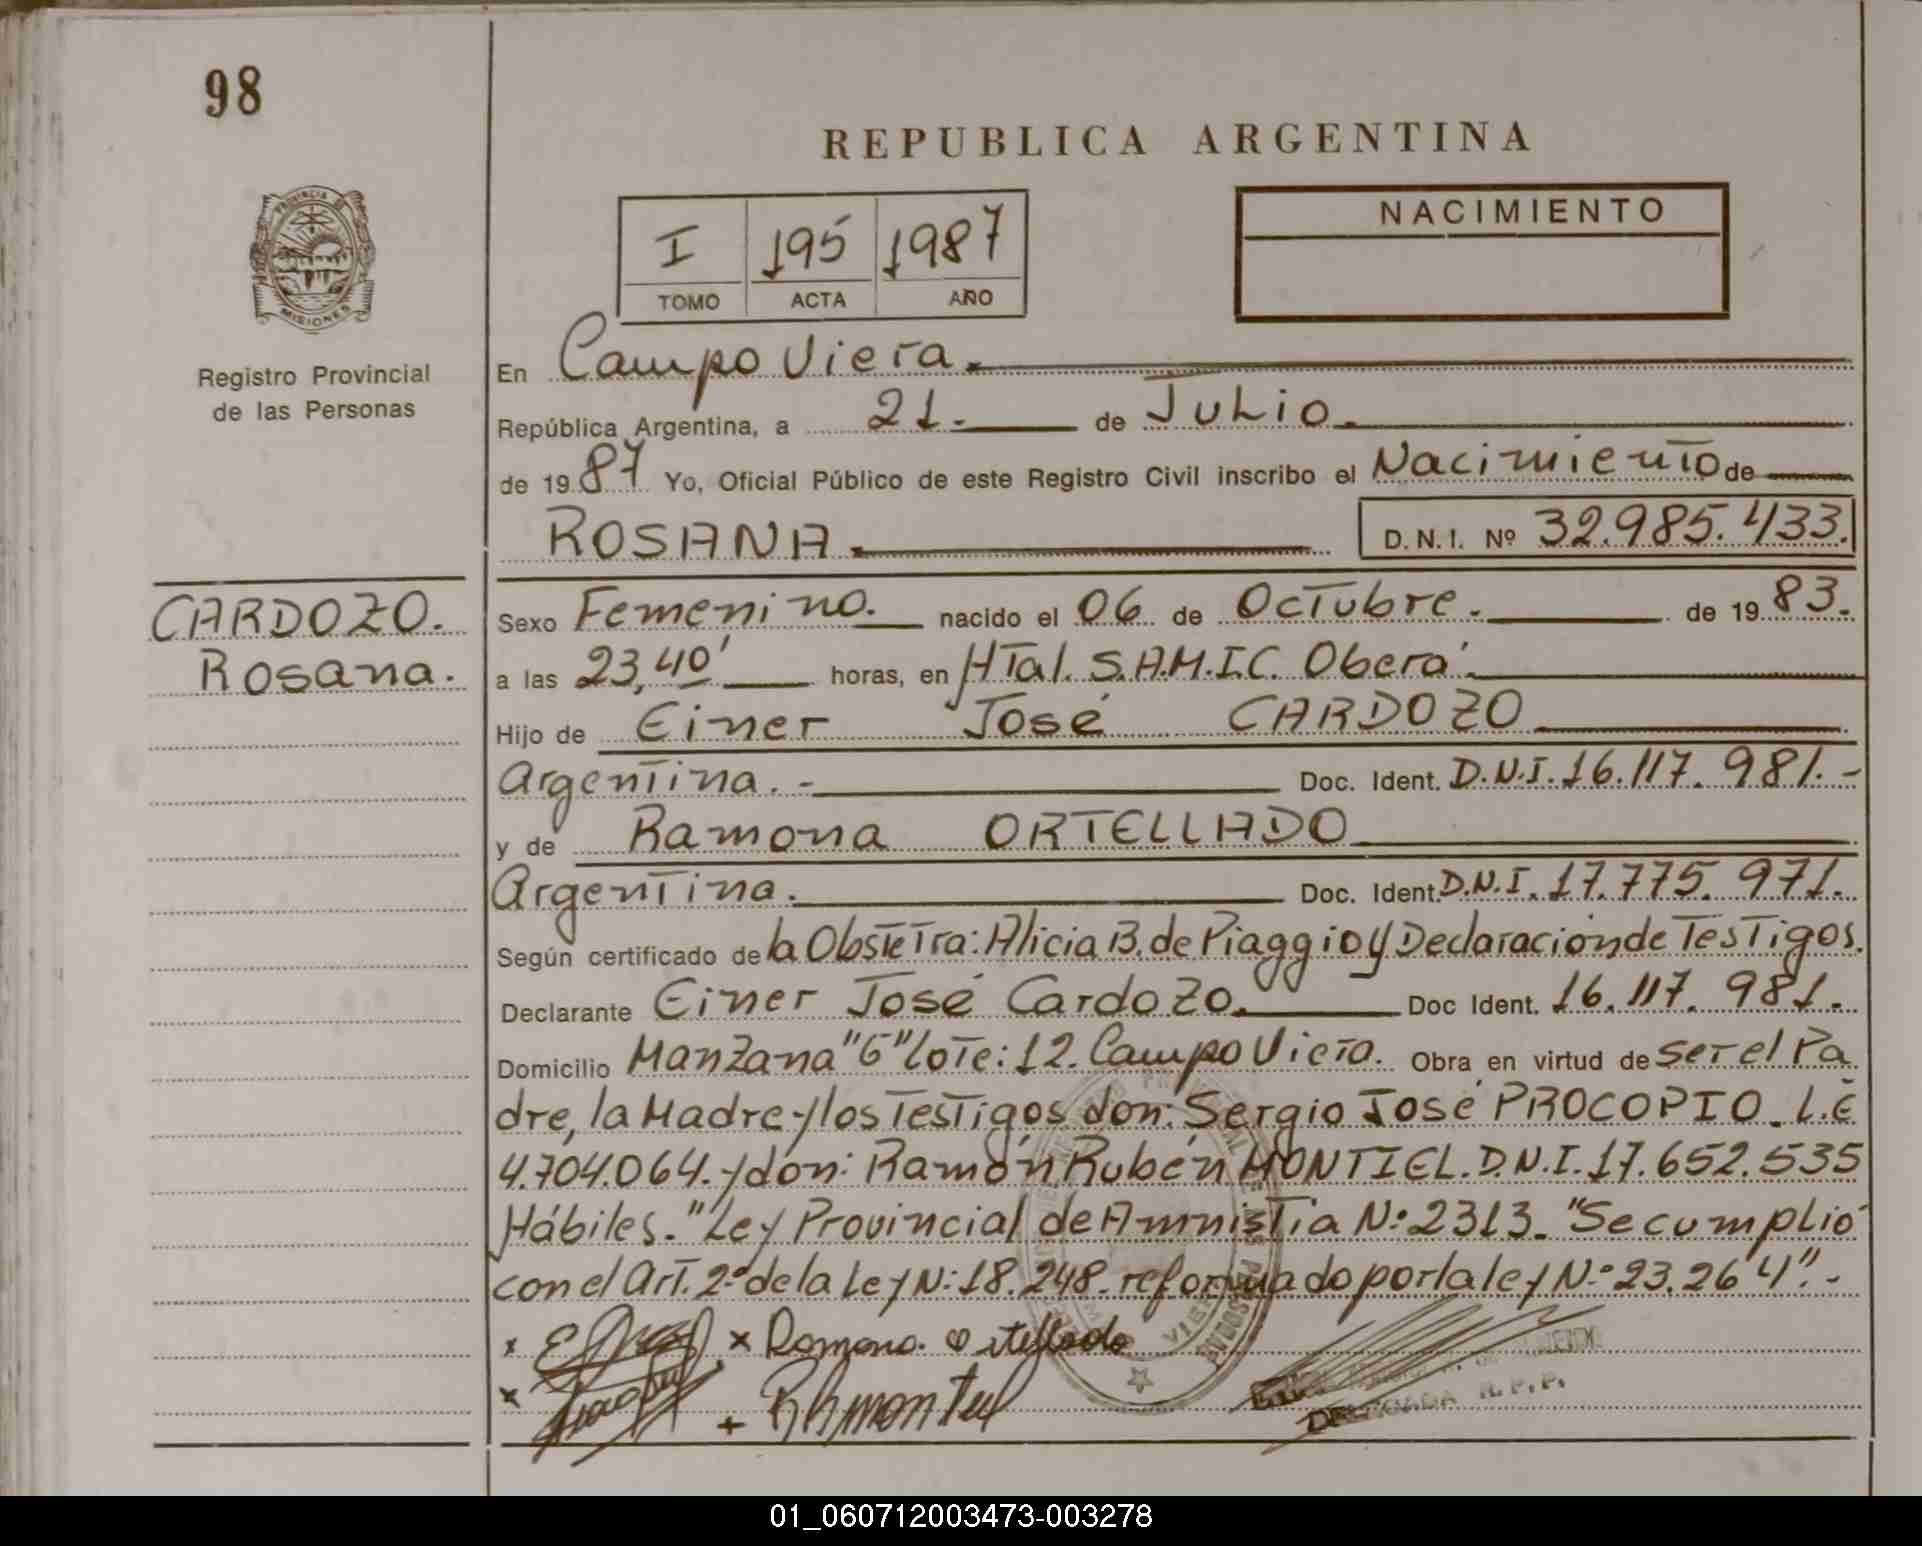 98
REPUBLICA ARGENTINA
PROVINCIA DE
MISIONES
I 195 1987
TOMO ACTA AÑO
NACIMIENTO
Registro Provincial
de las Personas
En Campo Viera.
República Argentina, a 21. de Julio.
de 1987 Yo, Oficial Público de este Registro Civil inscribo el Nacimiento de
ROSANA. D.N.I. Nº 32.985.433.
CARDOZO.
Rosana.
Sexo Femenino. nacido el 06 de Octubre. de 1983.
a las 23,40' horas, en HTal. S.A.M.I.C. Oberá.
Hijo de Einer José CARDOZO
Argentina. - Doc. Ident. D.N.I. 16.117.981.-
y de Ramona ORTELLADO
Argentina. Doc. Ident. D.N.I. 17.775.971.
Según certificado de la Obstetra: Alicia B. de Piaggio y Declaración de Testigos.
Declarante Einer José Cardozo. Doc Ident. 16.117.981.
Domicilio Manzana "G" Lote: 12. Campo Viera. Obra en virtud de ser el Pa
dre, la Madre y los Testigos don: Sergio José PROCOPIO. L.E
4.704.064. y don: Ramón Rubén MONTIEL. D.N.I. 17.652.535
Hábiles. "Ley Provincial de Amnistia N:º 2313. "Se cumplió
con el Art. 2º de la Ley N: 18.248. reformado por la ley N:º 23.264". -
x x Ramona Ortellado
x + RRmontiel
DELEGADA R.P.P.
01_060712003473-003278